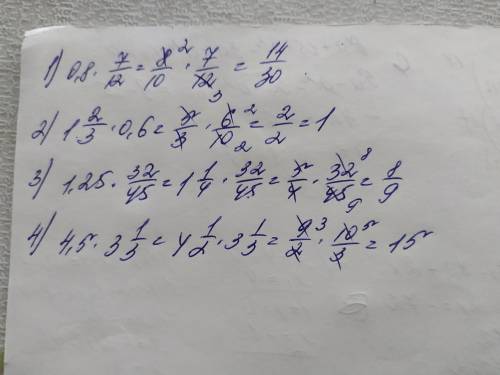 1) 0,8 · 7/12 = 8/10 ² · 7/12 ₃ = 14/30
2) 1 2/3 · 0,6 = 5/3 · 6/10 ² ₂ = 2/2 = 1
3) 1,25 · 32/45 = 1 1/4 · 32/45 = 5/4 · 32/45 ⁸ ₉ = 8/9
4) 4,5 · 3 1/3 = 4 1/2 · 3 1/3 = 9/2 ³ · 10/3 ⁵ = 15